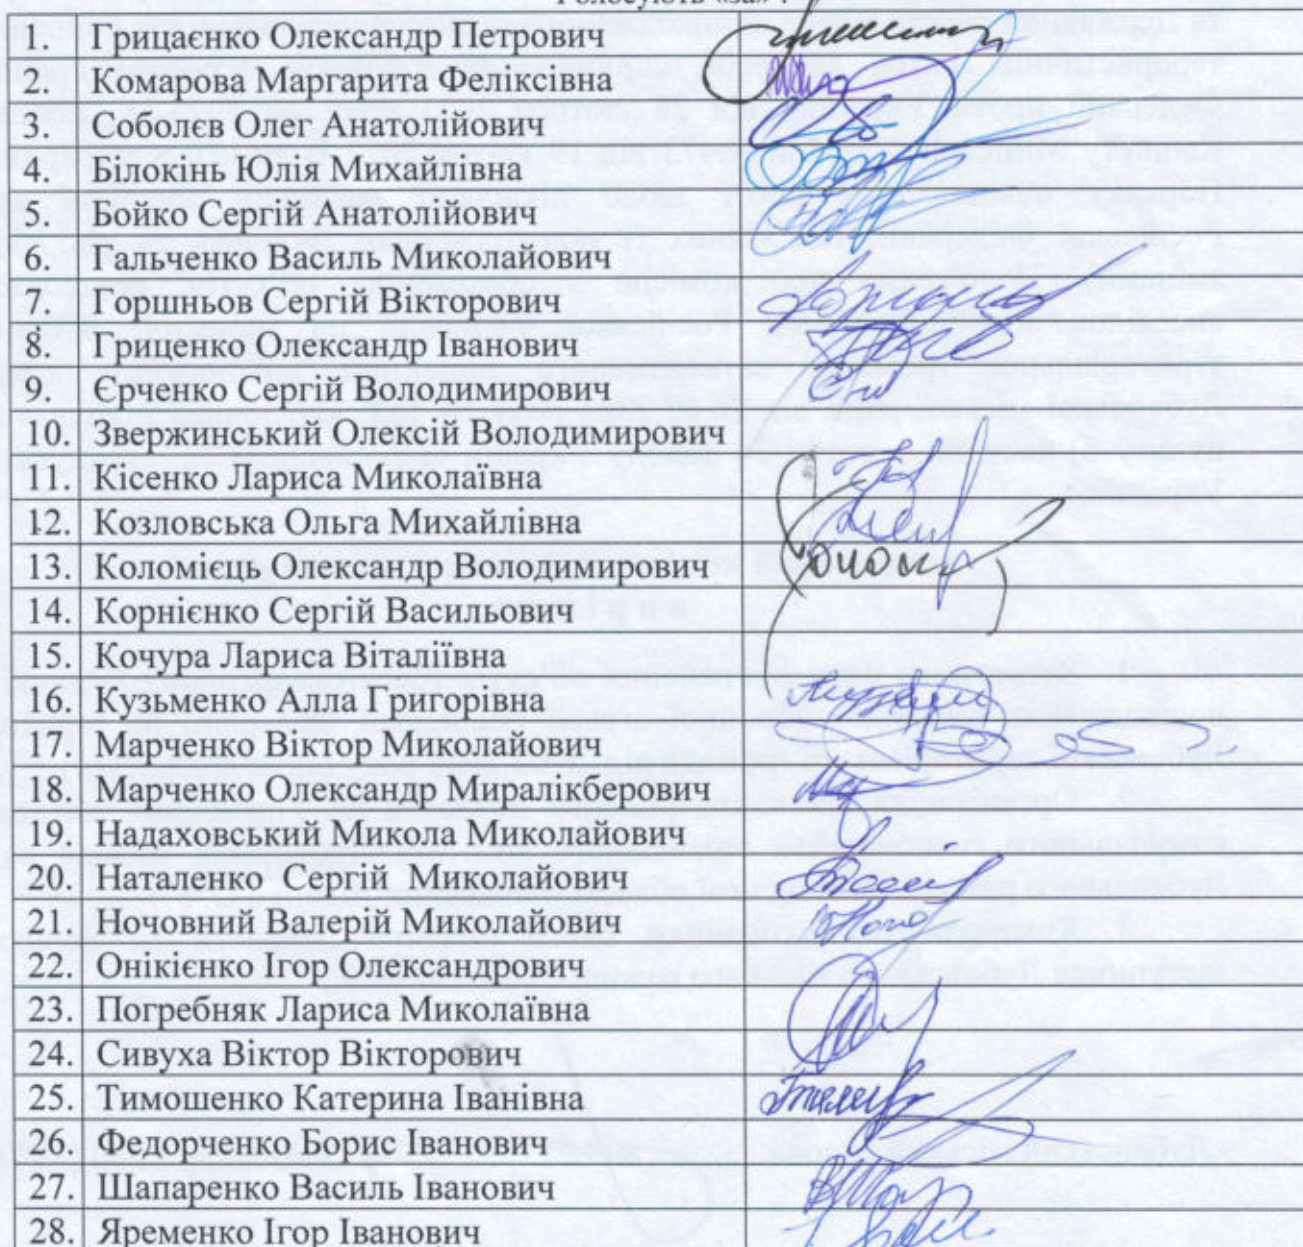 Голосують «за»:
1. Грицаєнко Олександр Петрович
2. Комарова Маргарита Феліксівна
3. Соболєв Олег Анатолійович
4. Білокінь Юлія Михайлівна
5. Бойко Сергій Анатолійович
6. Гальченко Василь Миколайович
7. Горшньов Сергій Вікторович
8. Гриценко Олександр Іванович
9. Єрченко Сергій Володимирович
10. Звержинський Олексій Володимирович
11. Кісенко Лариса Миколаївна
12. Козловська Ольга Михайлівна
13. Коломієць Олександр Володимирович
14. Корнієнко Сергій Васильович
15. Кочура Лариса Віталіївна
16. Кузьменко Алла Григорівна
17. Марченко Віктор Миколайович
18. Марченко Олександр Миралікберович
19. Надаховський Микола Миколайович
20. Наталенко Сергій Миколайович
21. Ночовний Валерій Миколайович
22. Онікієнко Ігор Олександрович
23. Погребняк Лариса Миколаївна
24. Сивуха Віктор Вікторович
25. Тимошенко Катерина Іванівна
26. Федорченко Борис Іванович
27. Шапаренко Василь Іванович
28. Яременко Ігор Іванович